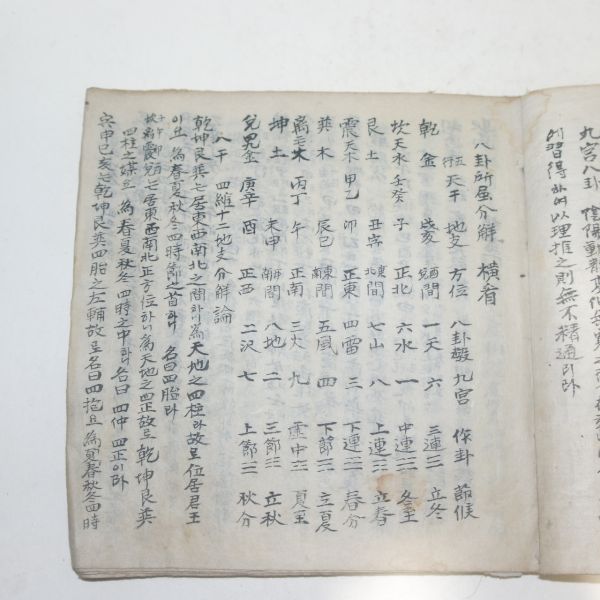 九宮八卦 陰陽動静変化
에 習得하여 以理推之則 無不精通이라
八卦所属分解 橫看
行五 天干 地支 方位 八卦數 九宮 作卦 節候
乾 金 戌亥 間 一天 六 三連 ☰ 立冬
坎 天水 壬癸 子 正北 六水 一 中連 ☵ 冬至
艮 土 丑寅 東北間 七山 八 上連 ☶ 立春
震 天木 甲乙 卯 正東 四雷 三 下連 ☳ 春分
巽 木 辰巳 東南間 五風 四 下節 ☴ 立夏
離 火 丙丁 午 正南 三火 九 虛中 ☲ 夏至
坤 土 未申 間 八地 二 三節 ☷ 立秋
兌 金 庚辛 酉 正西 二沢 七 上節 ☱ 秋分
八干 四維 十二地支 分解論
乾坤艮巽는 居東西南北之間하니 為天地之四柱라 故로 位居君王
이요 為春夏秋冬四時節之首하니 名曰四胎라
子午卯酉는 居東西南北正方位하니 為天地之四正故로 乾坤艮巽
四柱之媒요 為春夏秋冬四時之中하니 名曰 四仲 四正이라
寅申巳亥는 乾坤艮巽四胎之左輔故로 名曰四抱요 為夏春秋冬四時